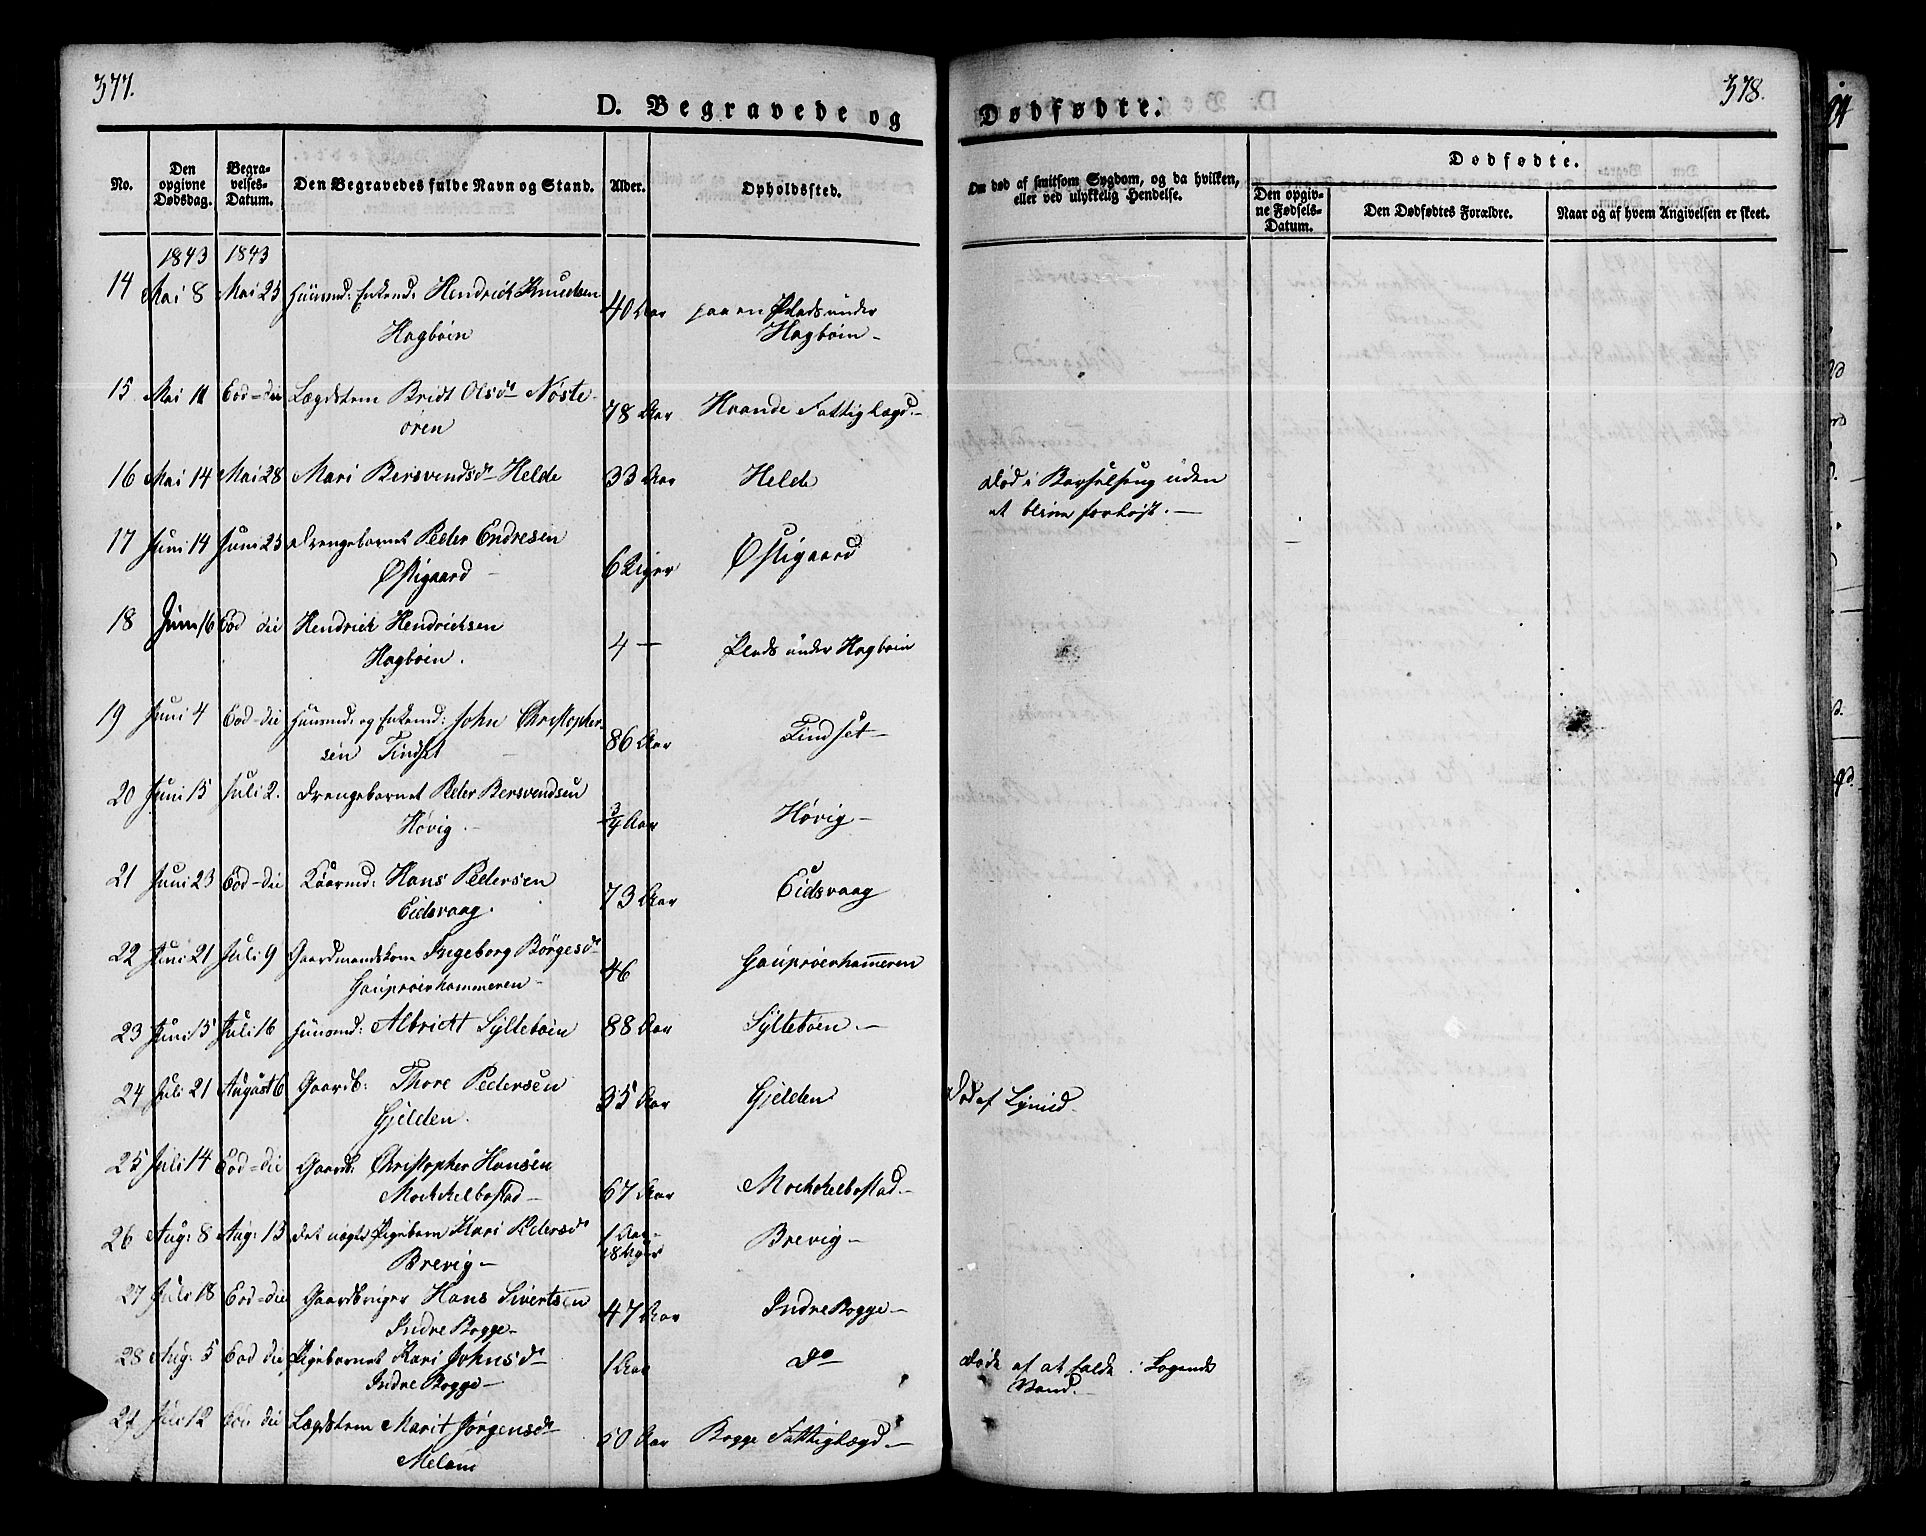 377.
378.
D. Begravede og Dødfødte.
No.
Den opgivne Dødsdag.
Begravelses-Datum.
Den Begravedes fulde Navn og Stand.
Alder.
Opholdssted.
Om død af smitsom Sygdom, og da hvilken, eller ved ulykkelig Hendelse.
Dødfødte.
Den opgivne Fødsels-Datum.
Den Dødfødtes Forældre.
Naar og af hvem Angivelsen er skeet.
1843 1843
14 Mai 8 Mai 25 Huusmd: Enkemd: Hendrich Knudsen 40 Aar paa en Plads under
Hagbøen Hagbøen -
15 Mai 11 Eod=die Lægdslem Bridt Olsdr Nøste- 78 Aar Hrande Fattiglægd.-
øren
16 Mai 14 Mai 28 Mari Bersvendsdr Helde 33 Aar Helde død i Barselseng uden
at blive forløst. -
17 Juni 14 Juni 25 Drengebarnet Peder Endresen 6 Uger Østigaard
Østigaard -
18 Juni 16 Eod die Hendrich Hendrichsen 4 - Plads under Hagbøen
Hagbøen.
19 Juni 4 Eod-die Huusmd: og Enkemd: John Christopher- 86 Aar Tindset -
sen Tindset -
20 Juni 15 Juli 2. Drengebarnet Peder Bersvendsen 3/4 Aar Høvig -
Høvig. -
21 Juni 23 Eod-die Kaarmd: Hans Pedersen 73 Aar Eidsvaag
Eidsvaag.
22 Juni 21 Juli 9 Gaardmandskone Ingeborg Børgesdr 46 Gauprøerhammeren
Gauprøerhammeren -
23 Juni 15 Juli 16 Huusmd: Albricht Syltebøen 88 Aar Syltebøen. -
24 Juli 21 August 6 Gaardb: Thore Pedersen 35 Aar Gjelden Død af
Gjelden.
25 Juli 14 Eod=die Gaardb: Christopher Hansen 67 Aar Mochkelbostad. -
Mochkelbostad -
26 Aug: 8 Aug: 13 det uægte Pigebarn Kari Pedersdr 1 Aar 18 Uger Brevig -
Brevig -
27 Juli 18 Eod=die Gaardbruger Hans Sivertsen 47 Aar Indre Bogge -
Indre Bogge -
28 Aug: 5 Eod die Pigebarnet Kari Johnsdr 1 Aar do Døde af at falde i kogende
Indre Bogge - Vand. -
Juli 12 Eod die Lægdslem Marit Jørgensdr 50 Aar Bogge Fattiglægd -